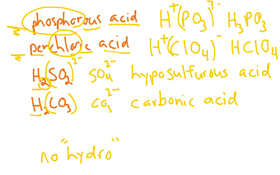 phosphorous acid H⁺(PO₃)³⁻ H₃PO₃
perchloric acid H⁺(ClO₄⁻) HClO₄
H₂(SO₂)²⁻ SO₄²⁻ hyposulfurous acid
H₂(CO₃) CO₃²⁻ carbonic acid
no "hydro"